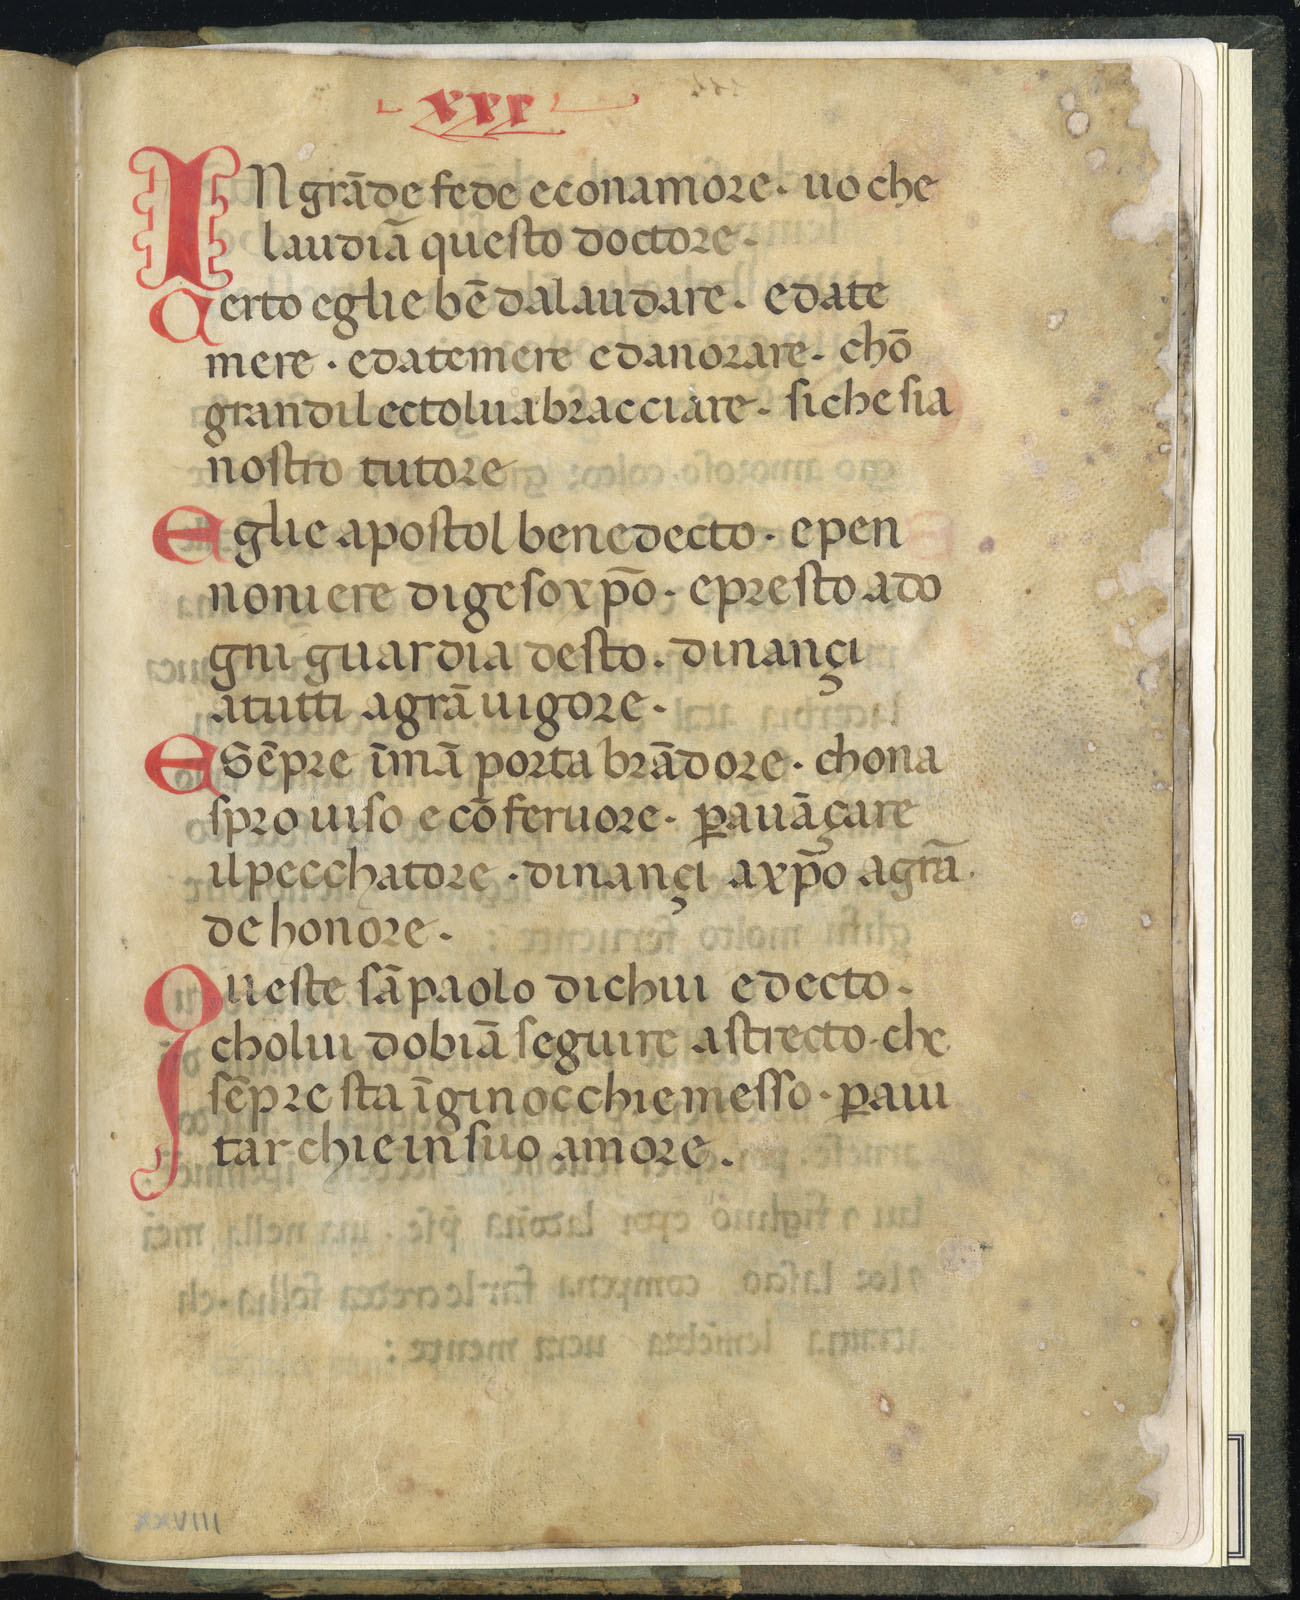 xxx
IN grãde fede e con amore · uo che
laudiã questo doctore ·
Certo eglie bẽ da laudare · e da te
mere · e da temere e da norare · chõ
gran dilecto lu abracciare · si che sia
nostro tutore
Eglie apostol benedecto · e pen
noniere di geso xp̄o · e presto ado
gni guardia desto · dinançi
a tutti a grã uigore ·
E Sẽpre ĩ mã porta brãdore · chon a
spro uiso e cõ feruore · ꝑ auãçare
il pecchatore · dinançi a xp̄o a grã
de honore ·
Queste sã paolo di chui e decto ·
cho lui dobiã seguire a strecto · che
sẽpre sta ĩ ginocchie messo · ꝑ aui
tar chi e in suo amore ·